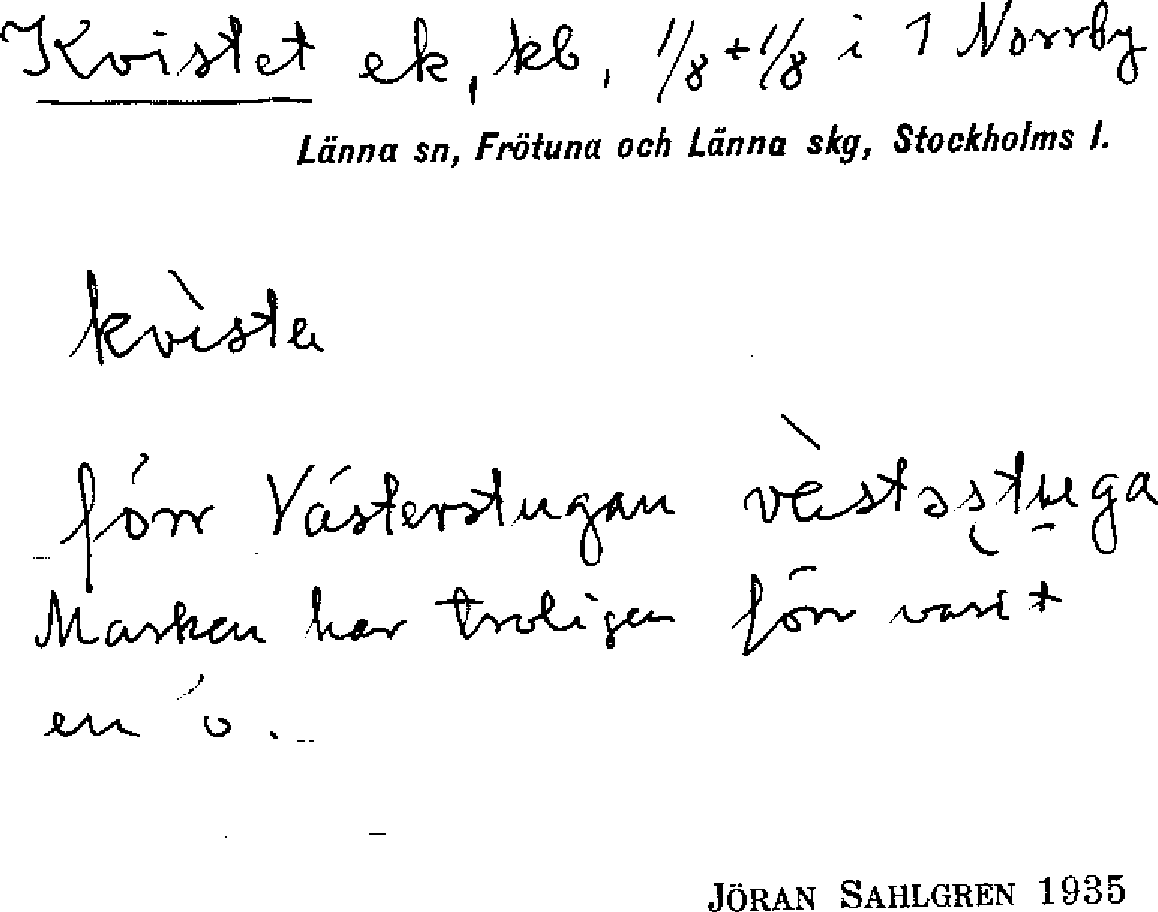 Kvistet ek, kb, 1/8 + 1/8 i 1 Norrby
Länna sn, Frötuna och Länna skg, Stockholms l.
kvìsta
förr Västerstugan vèstəstuga
Marken har troligen förr varit
en ö.
JÖRAN SAHLGREN 1935